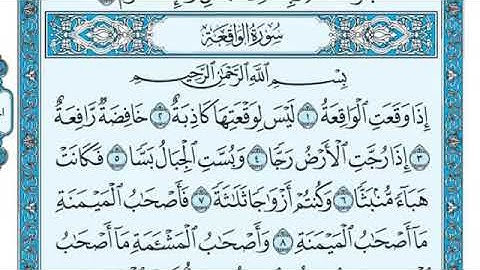 سُورَةُ الوَاقِعَةِ
بِسْمِ ٱللَّهِ ٱلرَّحْمَٰنِ ٱلرَّحِيمِ
إِذَا وَقَعَتِ ٱلْوَاقِعَةُ ١ لَيْسَ لِوَقْعَتِهَا كَاذِبَةٌ ٢ خَافِضَةٌ رَّافِعَةٌ
٣ إِذَا رُجَّتِ ٱلْأَرْضُ رَجًّا ٤ وَبُسَّتِ ٱلْجِبَالُ بَسًّا ٥ فَكَانَتْ
هَبَآءً مُّنۢبَثًّا ٦ وَكُنتُمْ أَزْوَٰجًا ثَلَٰثَةً ٧ فَأَصْحَٰبُ ٱلْمَيْمَنَةِ
مَآ أَصْحَٰبُ ٱلْمَيْمَنَةِ ٨ وَأَصْحَٰبُ ٱلْمَشْـَٔمَةِ مَآ أَصْحَٰبُ